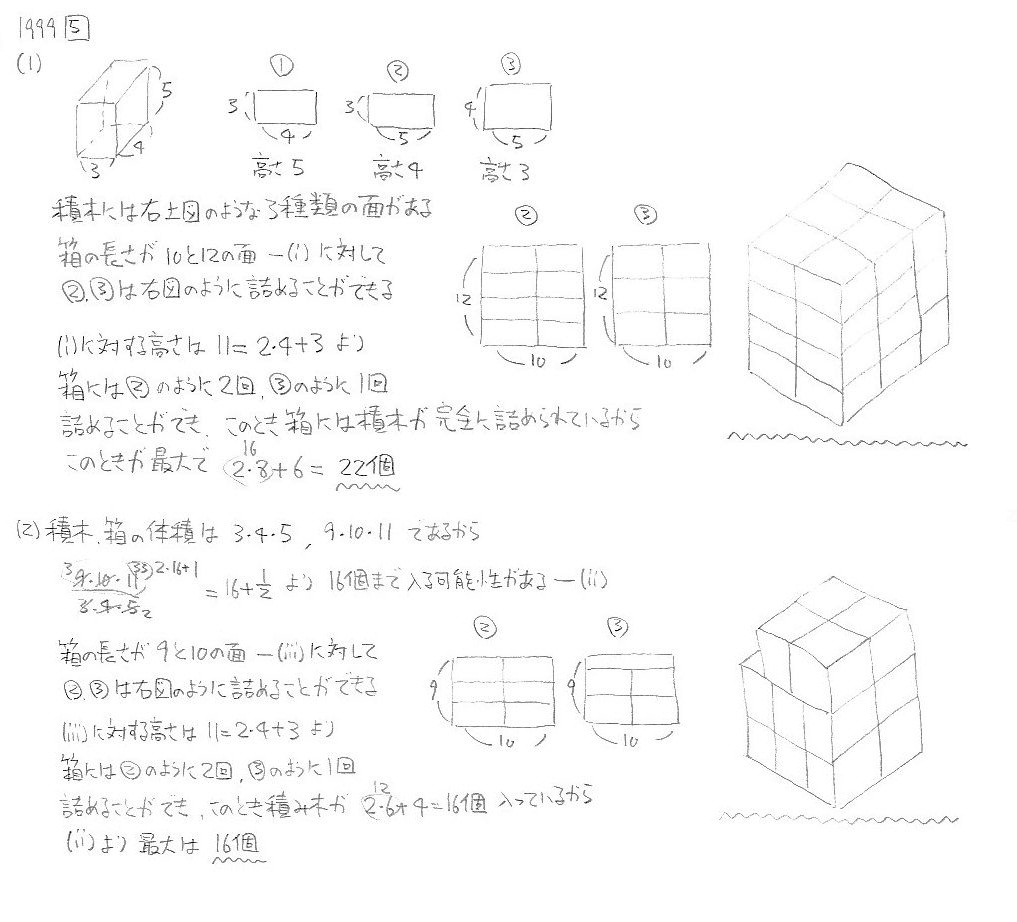 1999 5
(1)
① ② ③
5 4 3
3 4 3 5 4 5
高さ5 高さ4 高さ3
積木には右上図のような3種類の面がある
② ③
箱の長さが10と12の面 —(i) に対して
②,③は右図のように詰めることができる
12 10 12 10
(i)に対する高さは 11=2・4+3 より
箱には②のように2回,③のように1回
詰めることができ、このとき箱には積木が完全に詰められているから
16
このときが最大で 2・8+6= 22個
(2) 積木、箱の体積は 3・4・5 , 9・10・11 であるから
3 9・10・11 (33) 2・16+1
3・4・5 2 = 16+1/2 より 16個まで入る可能性がある —(ii)
② ③
箱の長さが9と10の面 —(iii)に対して
②,③は右図のように詰めることができる
9 10 9 10
(iii)に対する高さは 11=2・4+3 より
箱には②のように2回,③のように1回
12
詰めることができ、このとき積み木が 2・6+4=16個 入っているから
(ii)より 最大は 16個